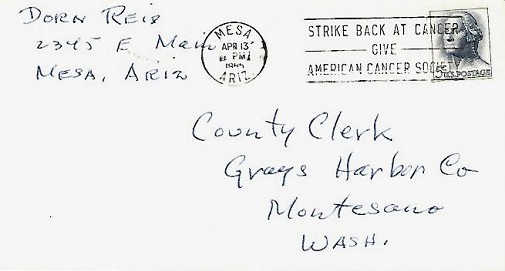 DORN REID
2345 E. Main
MESA, ARIZ
MESA
APR 13
PM
1965
ARIZ.
STRIKE BACK AT CANCER
GIVE
AMERICAN CANCER SOCIETY
5c U.S. POSTAGE
County Clerk
Grays Harbor Co
Montesano
WASH.